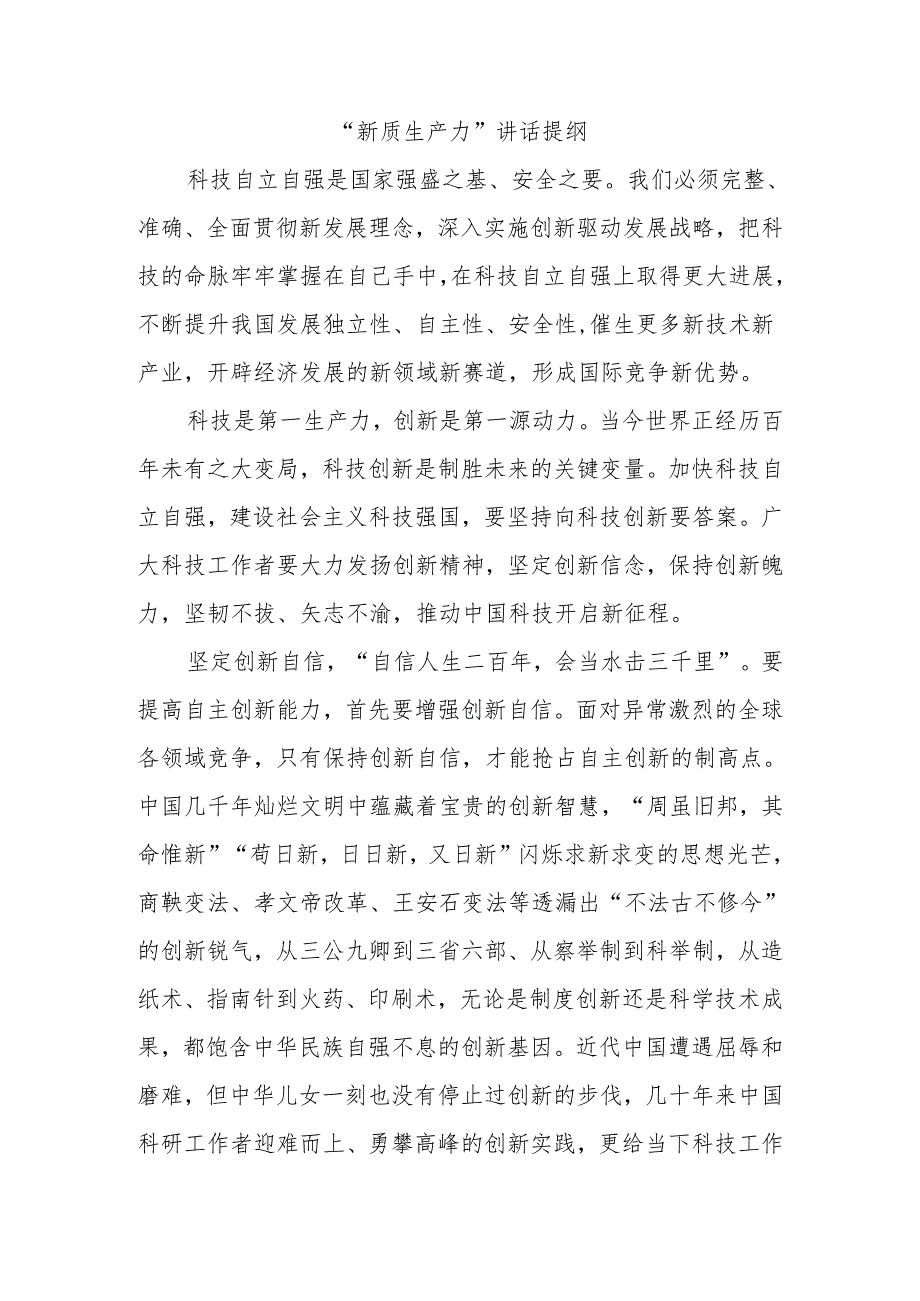 “新质生产力”讲话提纲
科技自立自强是国家强盛之基、安全之要。我们必须完整、
准确、全面贯彻新发展理念，深入实施创新驱动发展战略，把科
技的命脉牢牢掌握在自己手中,在科技自立自强上取得更大进展，
不断提升我国发展独立性、自主性、安全性,催生更多新技术新
产业，开辟经济发展的新领域新赛道，形成国际竞争新优势。
科技是第一生产力，创新是第一源动力。当今世界正经历百
年未有之大变局，科技创新是制胜未来的关键变量。加快科技自
立自强，建设社会主义科技强国，要坚持向科技创新要答案。广
大科技工作者要大力发扬创新精神，坚定创新信念，保持创新魄
力，坚韧不拔、矢志不渝，推动中国科技开启新征程。
坚定创新自信，“自信人生二百年，会当水击三千里”。要
提高自主创新能力，首先要增强创新自信。面对异常激烈的全球
各领域竞争，只有保持创新自信，才能抢占自主创新的制高点。
中国几千年灿烂文明中蕴藏着宝贵的创新智慧，“周虽旧邦，其
命惟新”“苟日新，日日新，又日新”闪烁求新求变的思想光芒，
商鞅变法、孝文帝改革、王安石变法等透漏出“不法古不修今”
的创新锐气，从三公九卿到三省六部、从察举制到科举制，从造
纸术、指南针到火药、印刷术，无论是制度创新还是科学技术成
果，都饱含中华民族自强不息的创新基因。近代中国遭遇屈辱和
磨难，但中华儿女一刻也没有停止过创新的步伐，几十年来中国
科研工作者迎难而上、勇攀高峰的创新实践，更给当下科技工作